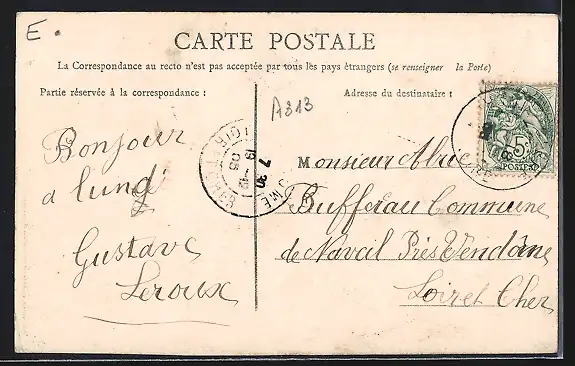 E.
CARTE POSTALE
La Correspondance au recto n'est pas acceptée par tous les pays étrangers (se renseigner la Poste)
Partie réservée à la correspondance :
Adresse du destinataire :
A313
Bonjour
a lundi
Gustave
Leroux
Monsieur
Buffereau Commune
de Naval Près Vendôme
Loir et Cher
5c
POSTES
7 30
19